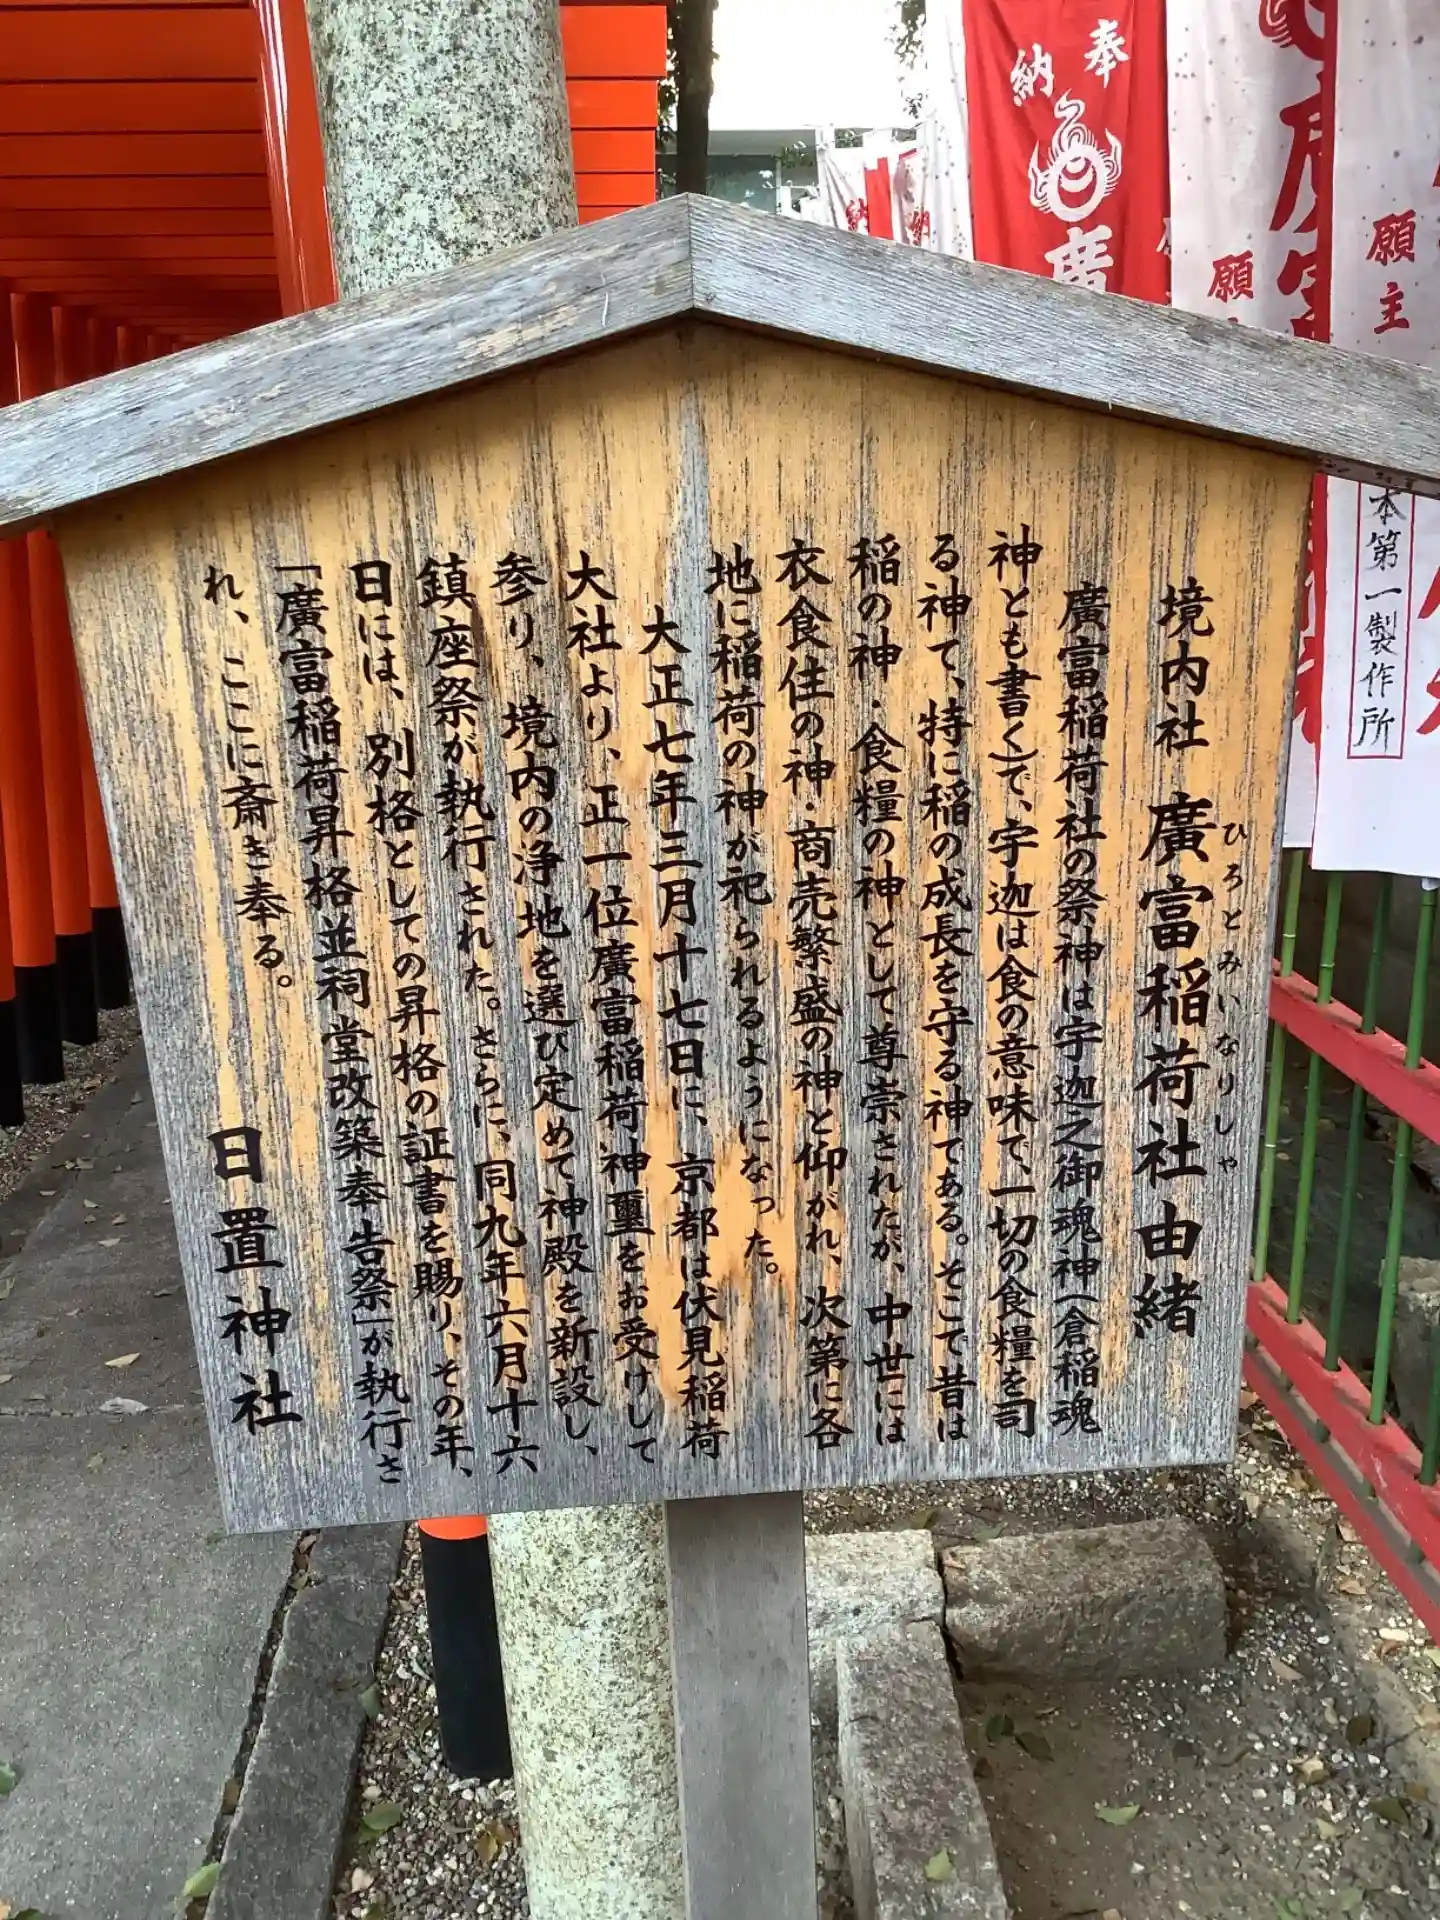 境内社 廣富稲荷社由緒
ひろとみいなりしゃ
廣富稲荷社の祭神は宇迦之御魂神(倉稲魂
神とも書く)で、宇迦は食の意味で、一切の食糧を司
る神て、特に稲の成長を守る神てある。そこで昔は
稲の神・食糧の神として尊崇されたが、中世には
衣食住の神・商売繁盛の神と仰がれ、次第に各
地に稲荷の神が祀られるようになった。
大正七年三月十七日に、京都は伏見稲荷
大社より、正一位廣富稲荷神璽をお受けして
参り、境内の浄地を選び定めて神殿を新設し、
鎮座祭が執行された。さらに、同九年六月十六
日には、別格としての昇格の証書を賜り、その年、
「廣富稲荷昇格並祠堂改築奉告祭」が執行さ
れ、ここに斎き奉る。
日置神社
奉納
廣
願
廣富
願主
本第一製作所
納
納